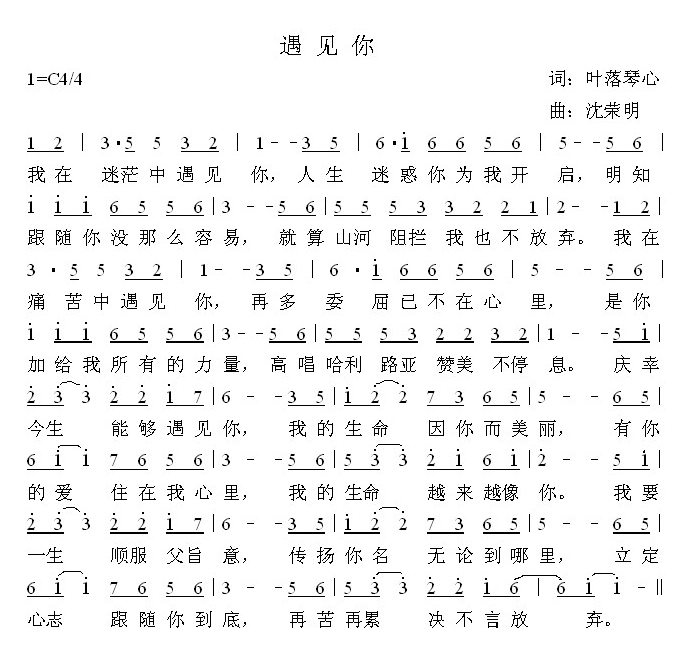 遇 见 你
1=C4/4 词：叶落琴心
曲：沈荣明
1 2 | 3·5 5 3 2 | 1 - - 3 5 | 6·i 6 6 5 6 | 5 - - 5 6 |
我在 迷茫中遇见 你，人生 迷惑你为我开 启，明知
i i i 6 5 5 6 | 3 - - 5 6 | 5 5 5 3 3 2 2 1 | 2 - - 1 2 |
跟随你没那么容易， 就算山河 阻拦 我也不放弃。我在
3 · 5 5 3 2 | 1 - - 3 5 | 6 · i 6 6 5 6 | 5 - - 5 6 |
痛 苦中遇见 你， 再多 委 屈已不在心 里， 是你
i i i 6 5 5 6 | 3 - - 5 6 | 5 5 5 3 2 2 3 2 | 1 - - 5 i |
加给我所有的力量，高唱哈利 路亚 赞美 不停 息。庆幸
2 3 3 2 2 i 7 | 6 - - 3 5 | i 2 2 7 3 6 5 | 5 - - 6 5 |
今生 能够遇见你， 我的生命 因你而美丽， 有你
6 i i 7 6 5 6 | 3 - - 5 6 | 5 3 3 2 i 6 i | 2 - - 5 i |
的爱 住在我心里， 我的生命 越来越像 你。 我要
2 3 3 2 2 i 7 | 6 - - 3 5 | i 2 2 7 3 6 5 | 5 - - 6 5 |
一生 顺服 父旨 意， 传扬你名 无论到哪里， 立定
6 i i 7 6 5 6 | 3 - - 5 6 | 5 3 3 2 2 i 6 | 6 i i - ‖
心志 跟随你到底， 再苦再累 决不言放 弃。